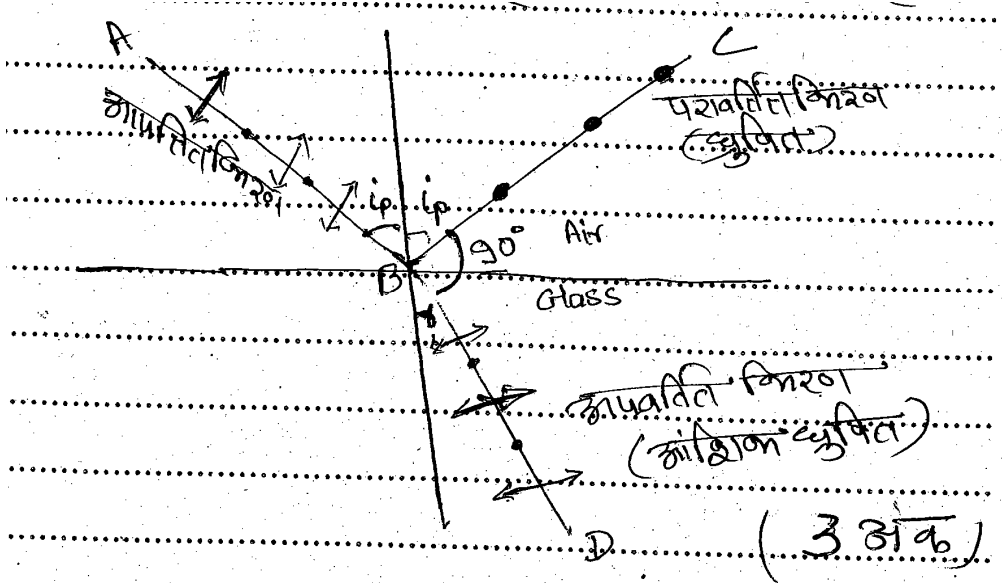 A
C
आपतित किरण
परावर्तित किरण
(ध्रुवित)
ip ip
90°
Air
B
Glass
r
अपवर्तित किरण
(आंशिक ध्रुवित)
D
(3 अंक)